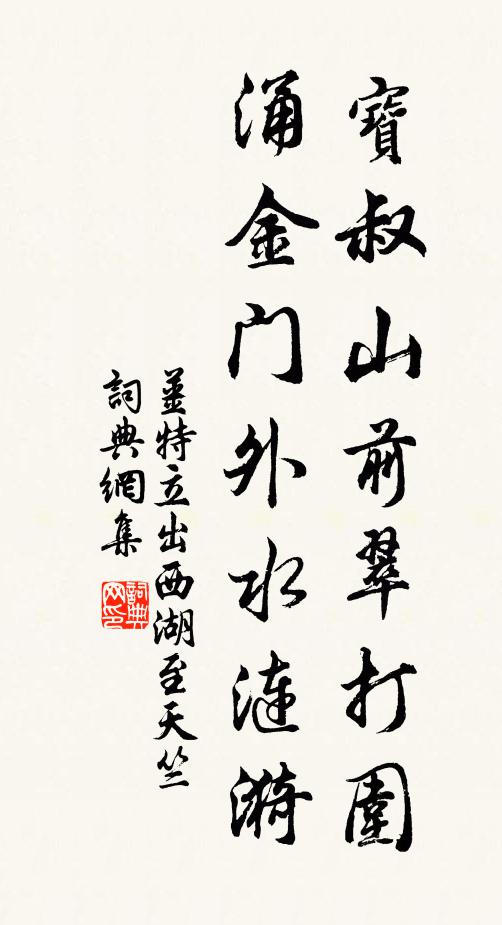 寶叔山前翠打圍
涌金门外水漣漪
薑特立出西湖至天竺
詞典網集
詞典网印